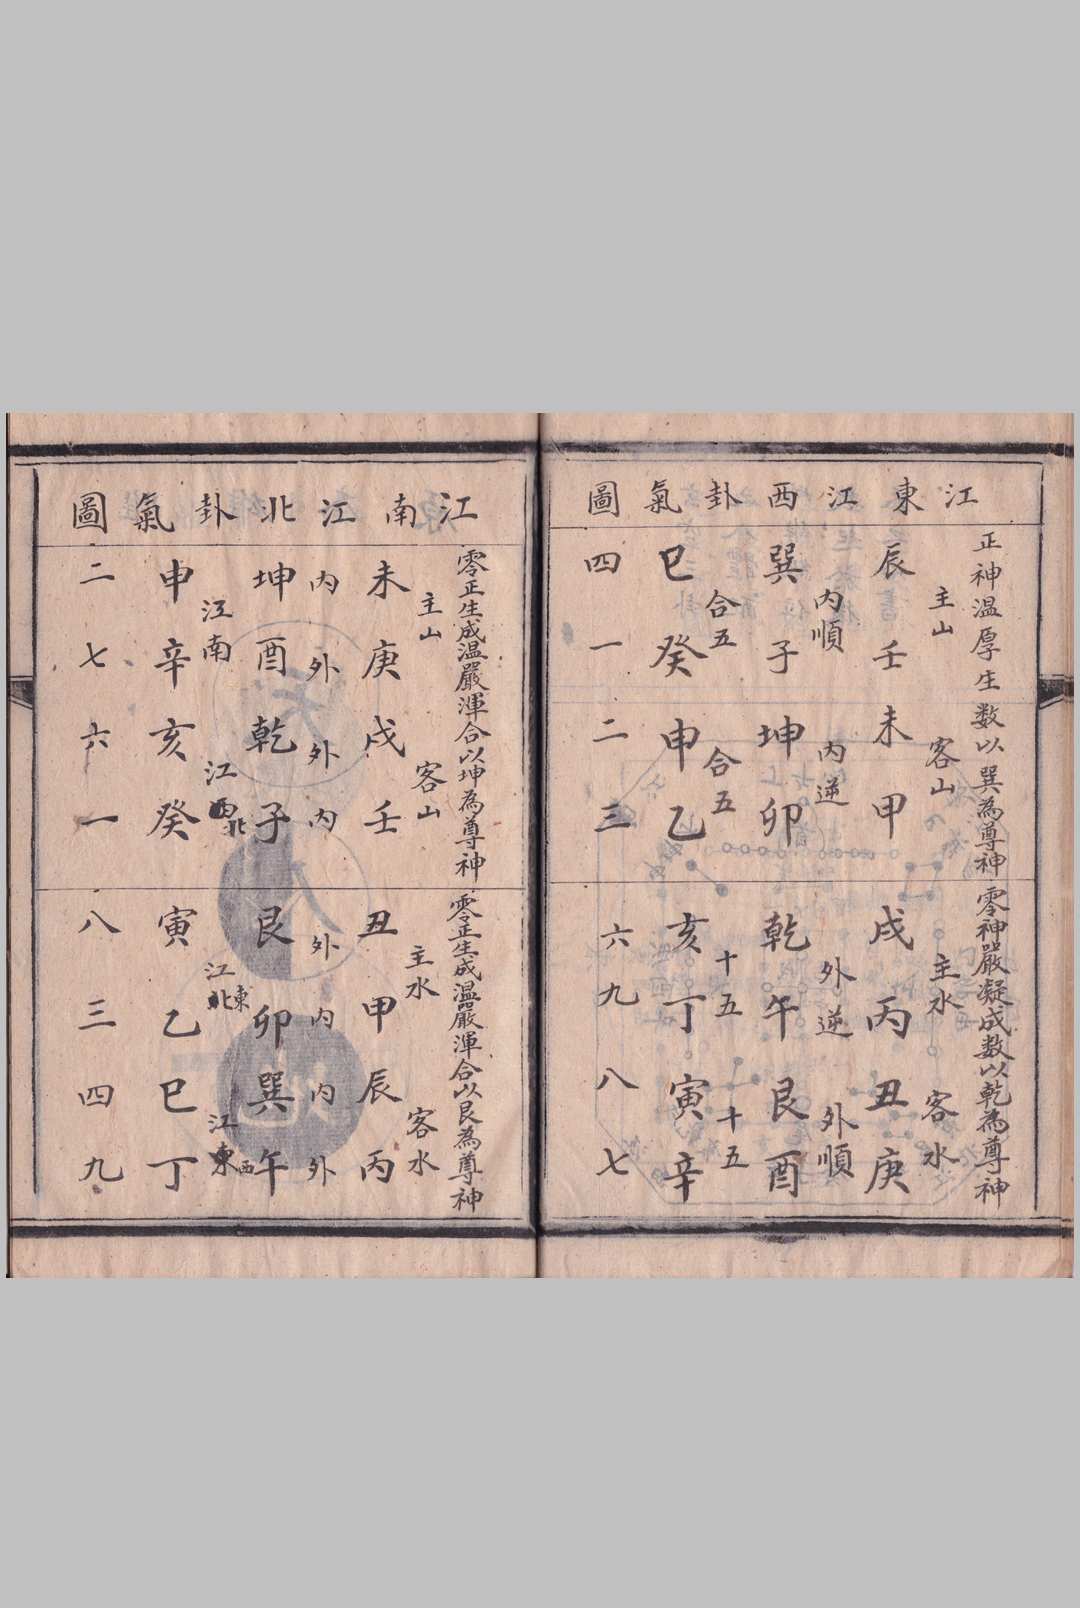 江東江西卦氣圖
正神温厚生数以巽為尊神
零神嚴凝成数以乾為尊神
主山 客山 主水 客水
辰壬未甲戌丙丑庚
内順 内逆 外逆 外順
巽子坤卯乾午艮酉
合五 合五 十五 十五
巳癸申乙亥丁寅辛
四一二三六九八七
江南江北卦氣圖
零正生成温嚴渾合以坤為尊神
零正生成温嚴渾合以艮為尊神
主山 客山 主水 客水
未庚戌壬丑甲辰丙
内外外内外内内外
坤酉乾子艮卯巽午
江南 江北 江北東 江東西
申辛亥癸寅乙巳丁
二七六一八三四九